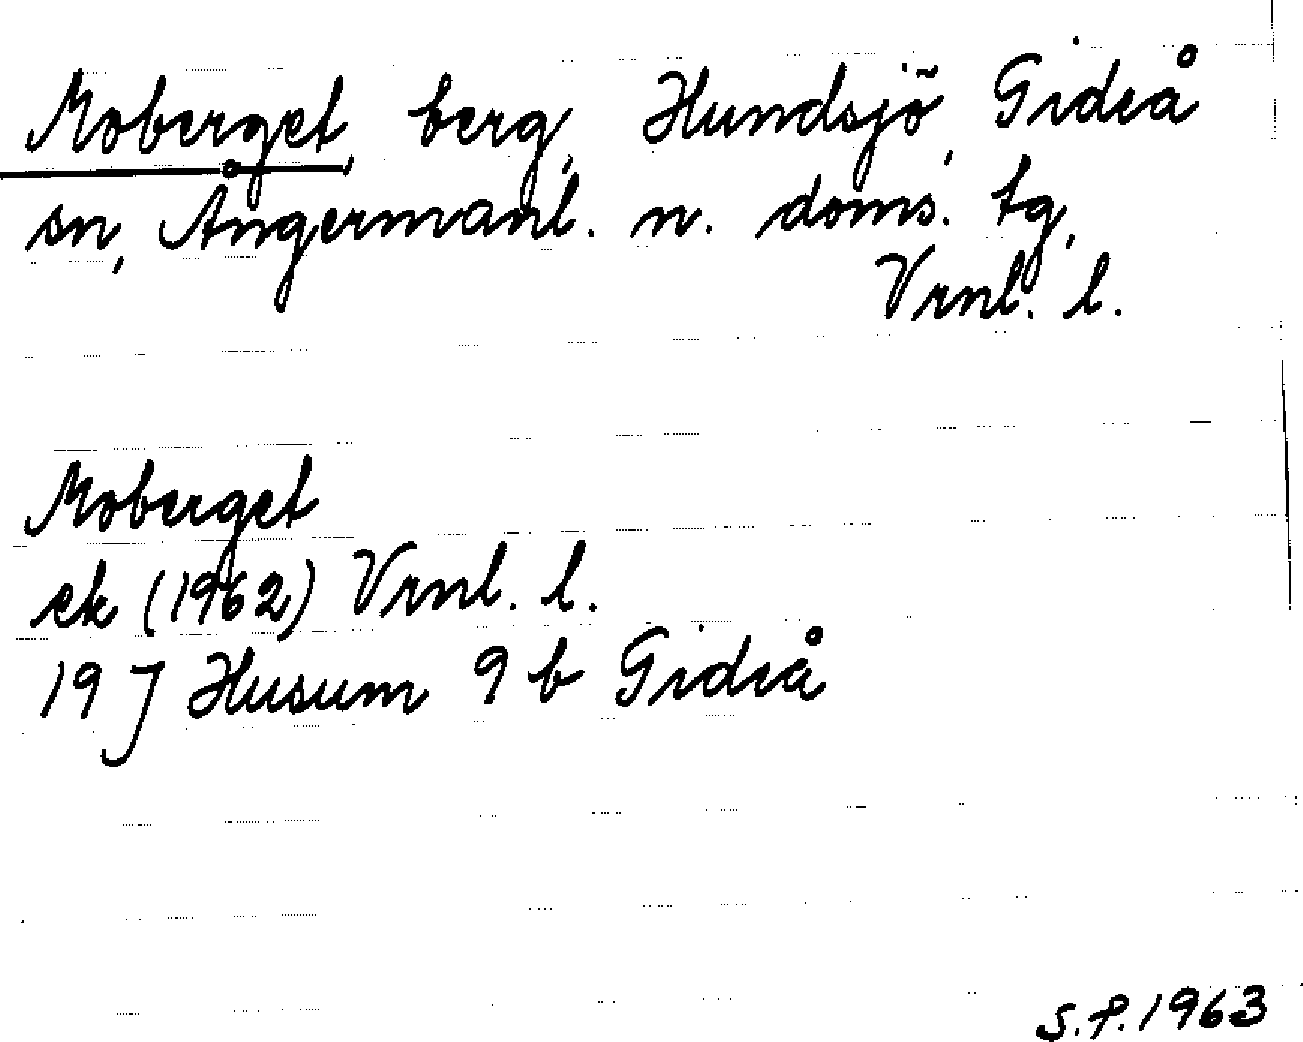 Moberget, berg, Hundsjö, Gideå
sn, Ångermanl. n. doms. tg,
Vrnl. l.
Moberget
ek (1962) Vrnl. l.
19 J Husum 9 b Gideå
S.P. 1963